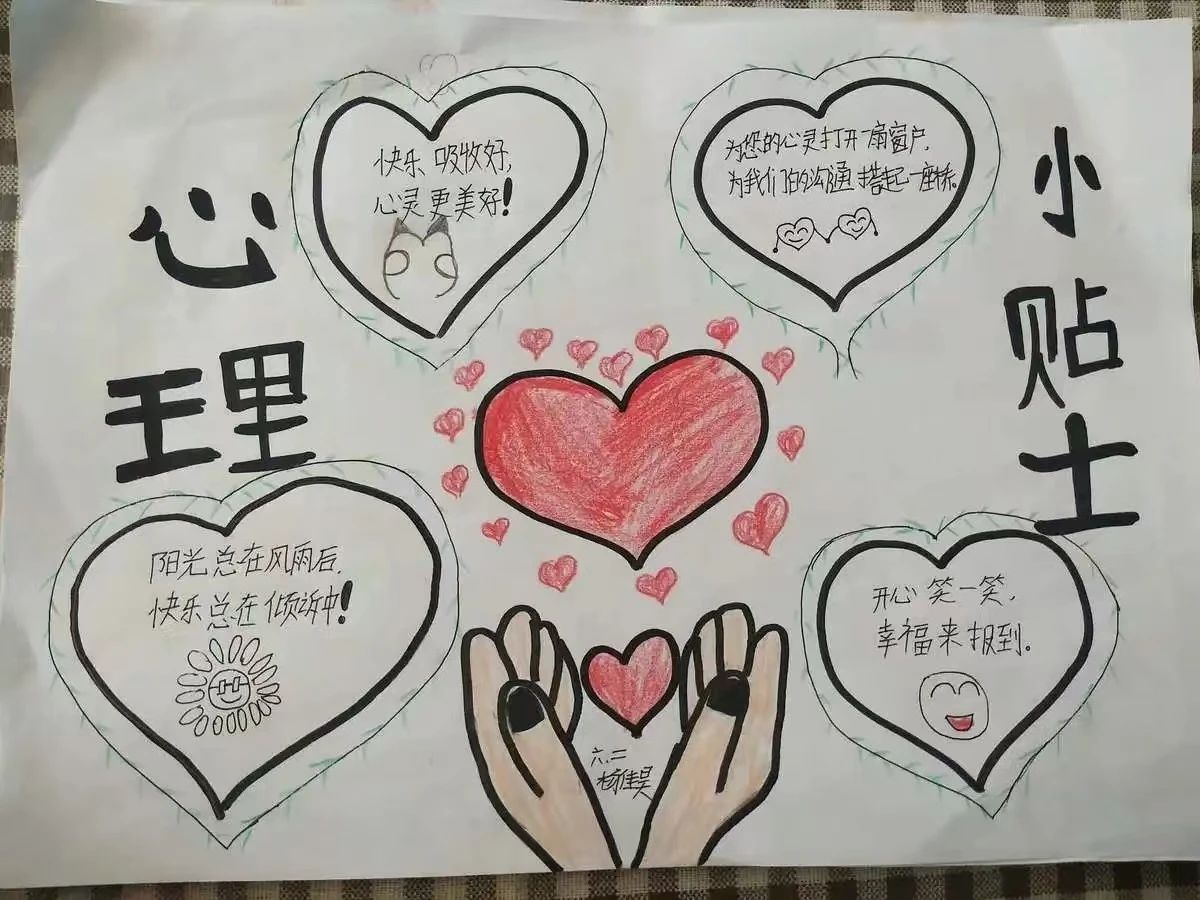 心理
小贴士
快乐吸收好,
心灵更美好!
为您的心灵打开一扇窗户,
为我们的沟通搭起一座桥.
阳光总在风雨后,
快乐总在倾诉中!
开心笑一笑,
幸福来报到。
六.二
杨佳昊